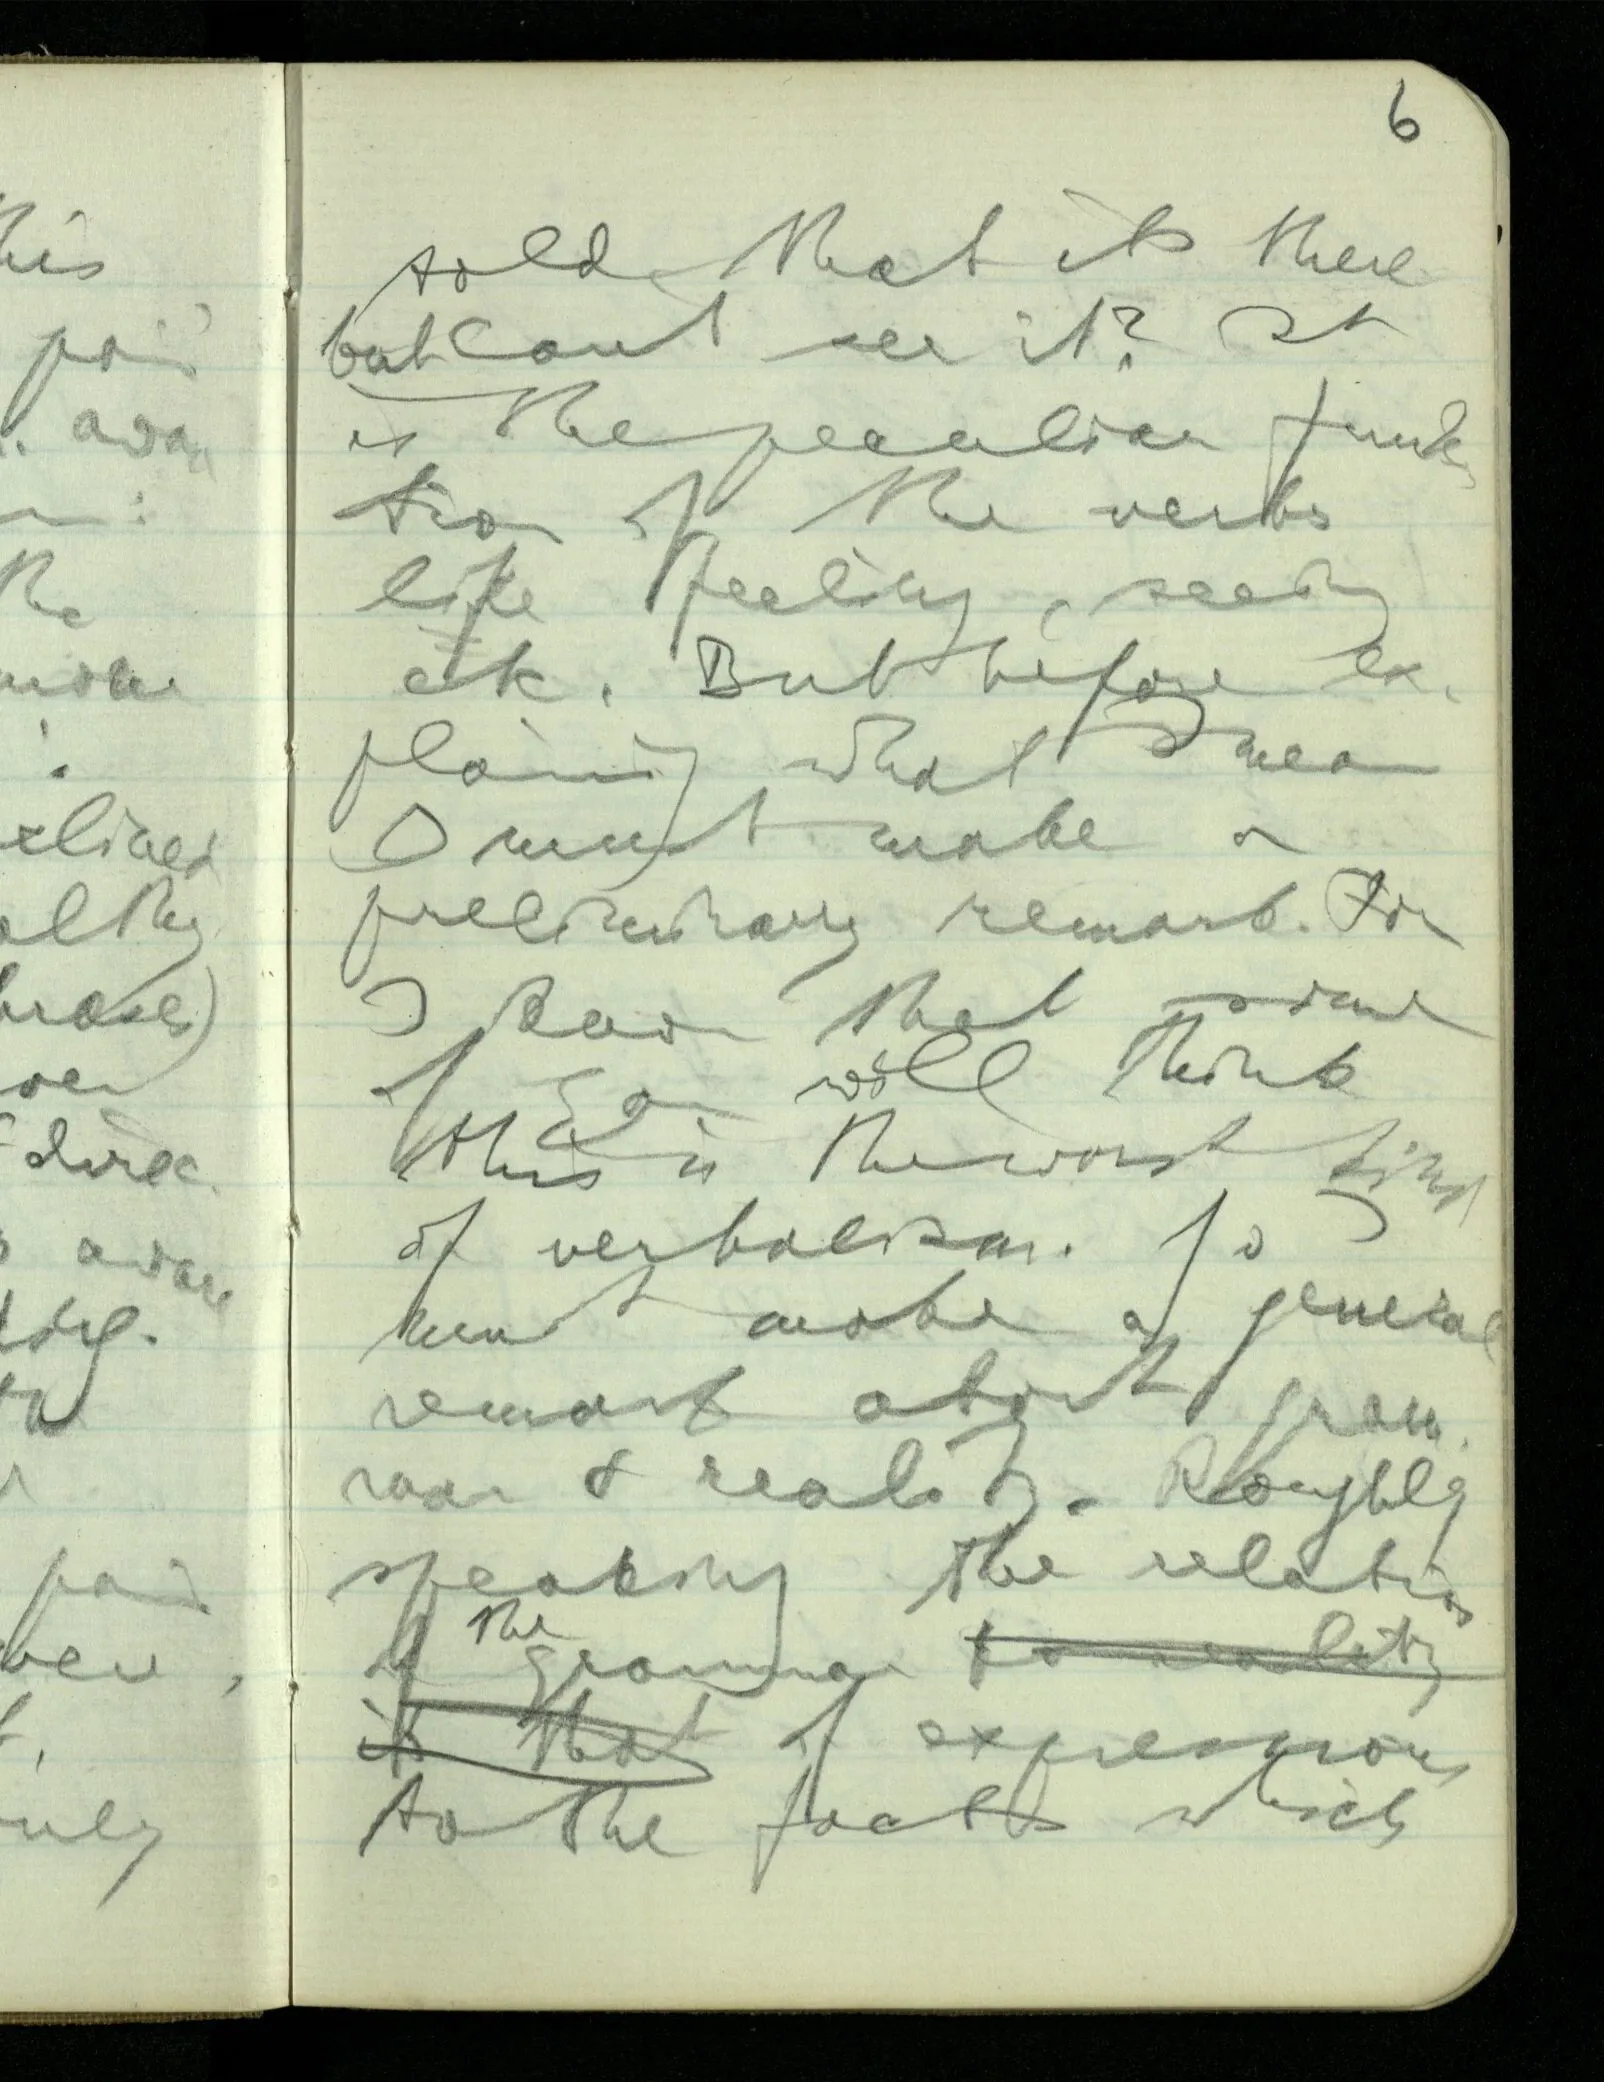 6
told that its there
but cant see it? It
is the peculiar funk
tion of the verbs
like feeling, seeing
etc. But before ex-
plaining what I mean
I must make a
preliminary remark. For
I know that some
of you will think
this is the worst kind
of verbalism. So I
must make a general
remark about gram-
mar & reality. Roughly
speaking the relation
of the grammar to reality
is that of expressions
to the facts which
his
pain
. awar
the
more
elined
hrases)
direc
aware
pain